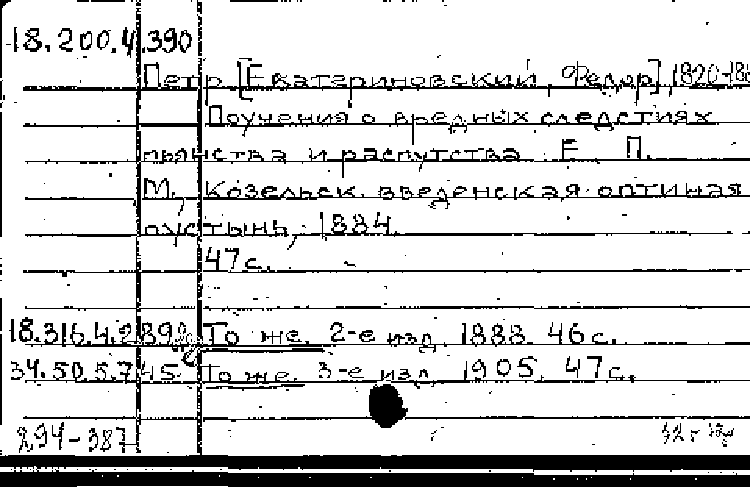 18.200.4.390
Петр [Екатериновский, Федор], 1820-188
Поучения о вредных следствиях
пьянства и распутства. Е. П.
М., Козельск. введенская оптиная
пустынь, 1884.
47 с.
18.316.4.289 То же. 2-е изд. 1888. 46 с.
34.50.5.745 То же. 3-е изд. 1905. 47 с.
294-387